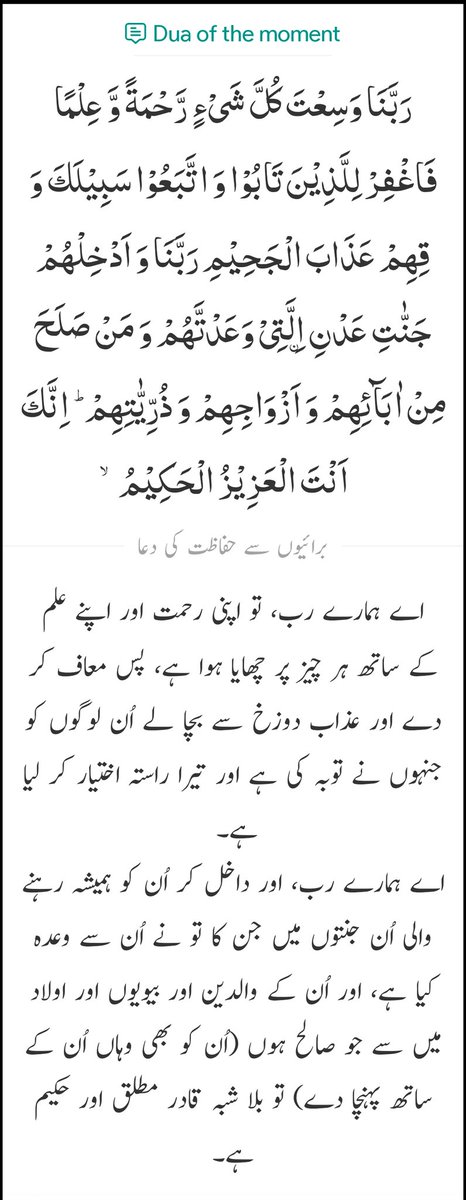 Dua of the moment
رَبَّنَا وَسِعْتَ كُلَّ شَیْءٍ رَّحْمَةً وَّ عِلْمًا
فَاغْفِرْ لِلَّذِیْنَ تَابُوْا وَ اتَّبَعُوْا سَبِیْلَكَ وَ
قِهِمْ عَذَابَ الْجَحِیْمِ رَبَّنَا وَ اَدْخِلْهُمْ
جَنّٰتِ عَدْنِ ِ۟الَّتِیْ وَعَدْتَّهُمْ وَ مَنْ صَلَحَ
مِنْ اٰبَآئِهِمْ وَ اَزْوَاجِهِمْ وَ ذُرِّیّٰتِهِمْ ؕ اِنَّكَ
اَنْتَ الْعَزِیْزُ الْحَكِیْمُ ۙ
برائیوں سے حفاظت کی دعا
اے ہمارے رب، تو اپنی رحمت اور اپنے علم
کے ساتھ ہر چیز پر چھایا ہوا ہے، پس معاف کر
دے اور عذاب دوزخ سے بچا لے اُن لوگوں کو
جنہوں نے توبہ کی ہے اور تیرا راستہ اختیار کر لیا
ہے۔
اے ہمارے رب، اور داخل کر اُن کو ہمیشہ رہنے
والی اُن جنتوں میں جن کا تو نے اُن سے وعدہ
کیا ہے، اور اُن کے والدین اور بیویوں اور اولاد
میں سے جو صالح ہوں (اُن کو بھی وہاں اُن کے
ساتھ پہنچا دے) تو بلا شبہ قادر مطلق اور حکیم
ہے۔